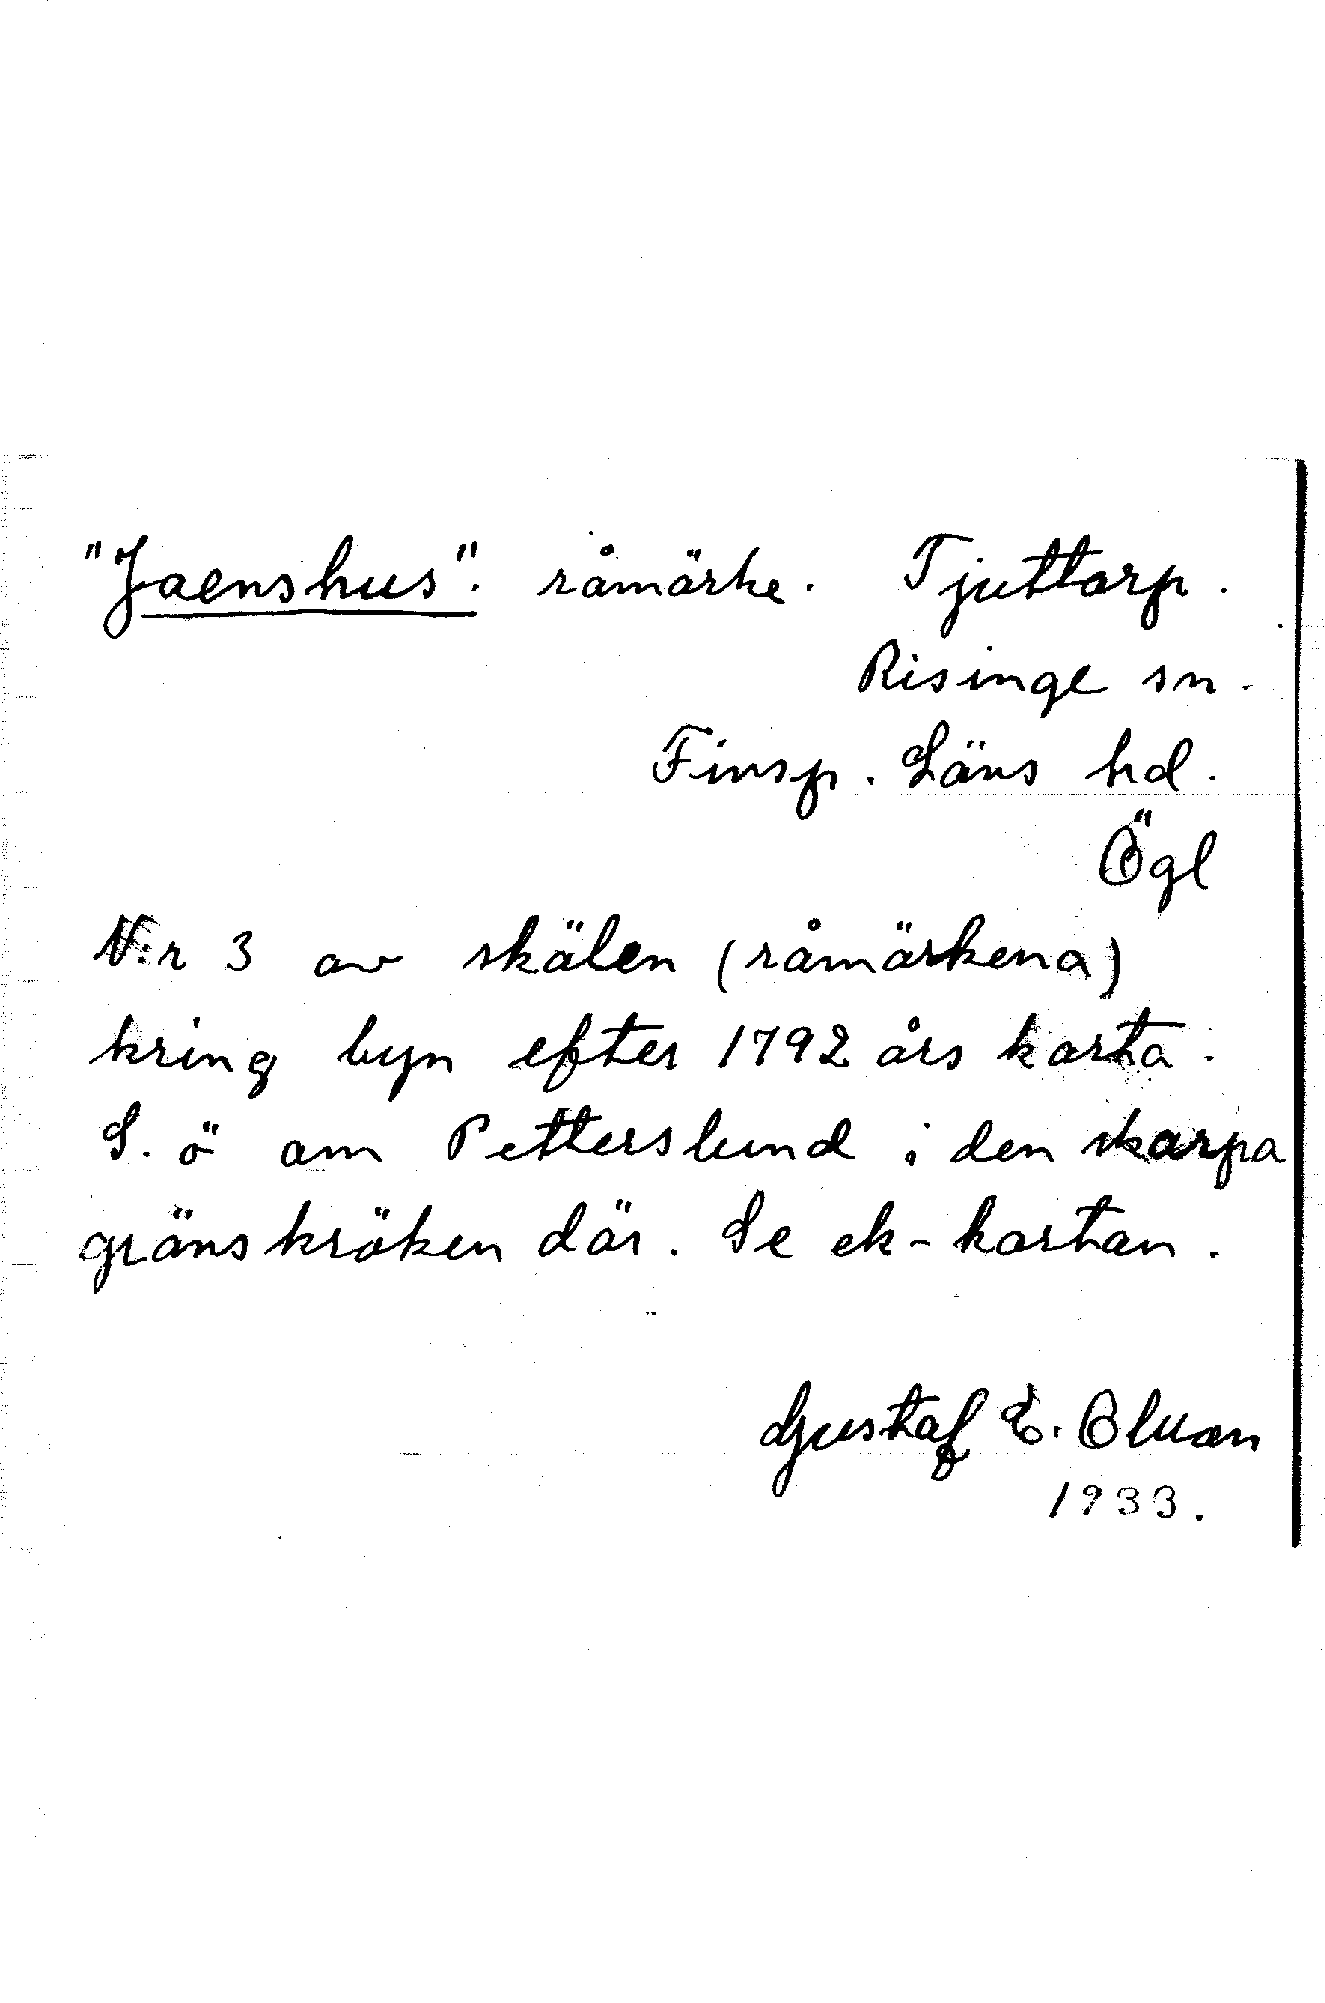 "Jaenshus". råmärke. Tjuttorp.
Risinge sn.
Finsp. Läns hd.
Ögl
N:r 3 av skälen (råmärkena)
kring byn efter 1792 års karta.
S. ö om Petterslund i den skarpa
gränskröken där. Se ek-kartan.
Gustaf E.
1933.